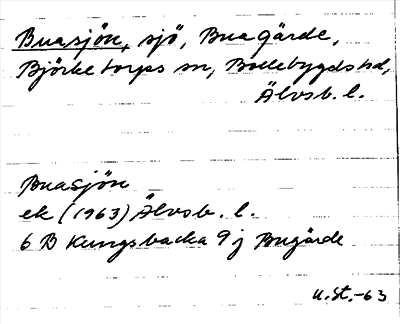 Buasjön, sjö, Buagärde,
Björketorps sn, Bollebygds hd,
Älvsb. l.
Buasjön
ek (1963) Älvsb. l.
6 B Kungsbacka 9 j Bugärde
U.St.-63